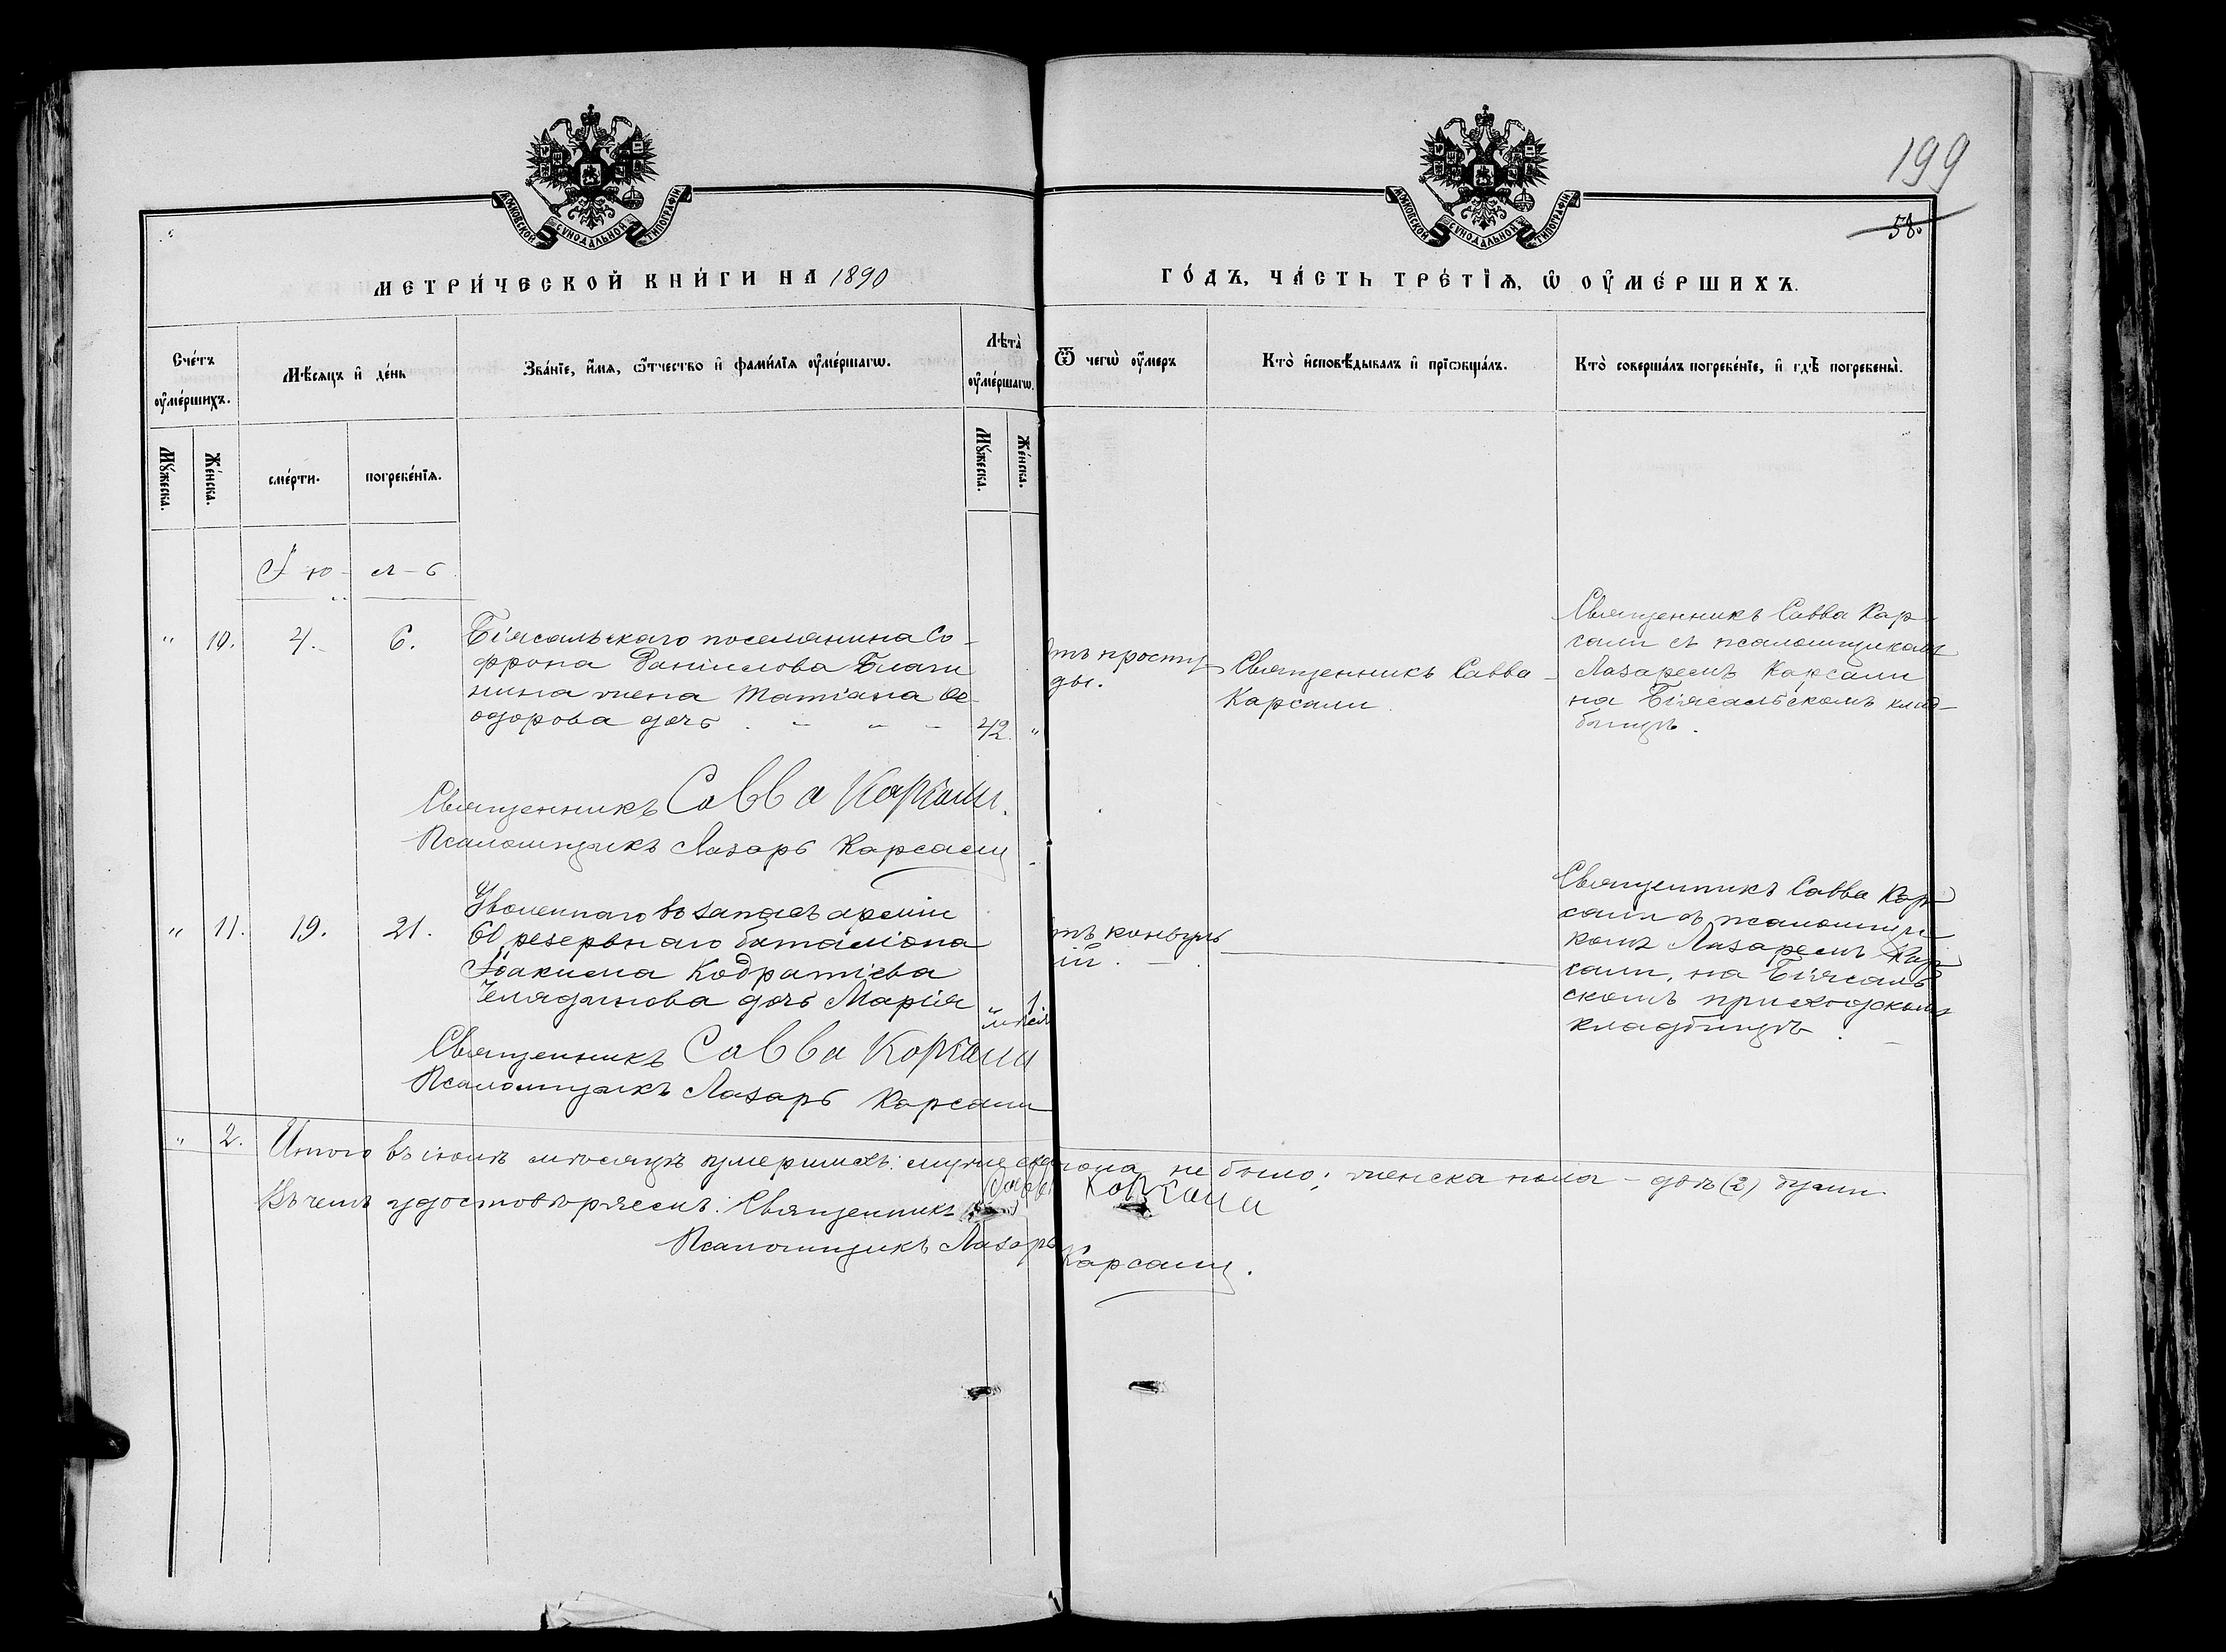 МОСКОВСКОЙ СѴНОДАЛЬНОЙ ТИПОГРАФІИ
МОСКОВСКОЙ СѴНОДАЛЬНОЙ ТИПОГРАФІИ
199
58.
МЕТРИ́ЧЕСКОЙ КНИ́ГИ НА 1890
ГО́ДЪ, ЧА́СТЬ ТРЕ́ТЇѦ, Ѡ҆ ОУ҆МЕ́РШИХЪ.
Сче́тъ оу҆ме́ршихъ.
Мѣ́сѧцъ и҆ де́нь
Зва́нїе, и҆́мѧ, ѻ҆́тчество и҆ фами́лїѧ оу҆ме́ршагѡ.
Лѣ́та оу҆ме́ршагѡ.
Ѿ чегѡ̀ оу҆́меръ
Кто̀ и҆сповѣ́дывалъ и҆ прїѡбща́лъ.
Кто̀ соверша́лъ погребе́нїе, и҆ гдѣ̀ погребены̀.
Мꙋ́жеска.
Же́нска.
сме́рти.
погребе́нїѧ.
Мꙋ́жеска.
Же́нска.
І ю - л - ь
" 10. 4. 6.
Біясальскаго поселянина Со-
фрона Даніилова
жена Татіана Ѳе-
одорова дочь . - - - 42. "
отъ просту-
ды.
Священникъ Савва
Карсали.
Священникъ Савва Кар-
сали съ псаломщикомъ
Лазаремъ Карсали
на Біясальскомъ клад-
бищѣ.
Священникъ Савва Карсали.
Псаломщикъ Лазарь Карсали
" 11. 19. 21.
Уволеннаго въ запасъ арміи
61 резервнаго баталіона
Іоакима Кодратіева
Челядинова дочь Марія " 1
мѣсяц
отъ конвуль-
сій. - .
Священникъ Савва Кар-
сали съ псаломщи-
комъ Лазаремъ Кар-
сали, на Біясаль-
скомъ приходскомъ
кладбищѣ.
Священникъ Савва Карсали
Псаломщикъ Лазарь Карсали
" 2. Итого въ іюлѣ мѣсяцѣ умершихъ: мужескаго пола не было; женска пола - двѣ (2) души.
Въ чемъ удостовѣряемъ: Священникъ Савва Карсали
Псаломщикъ Лазарь Карсали.